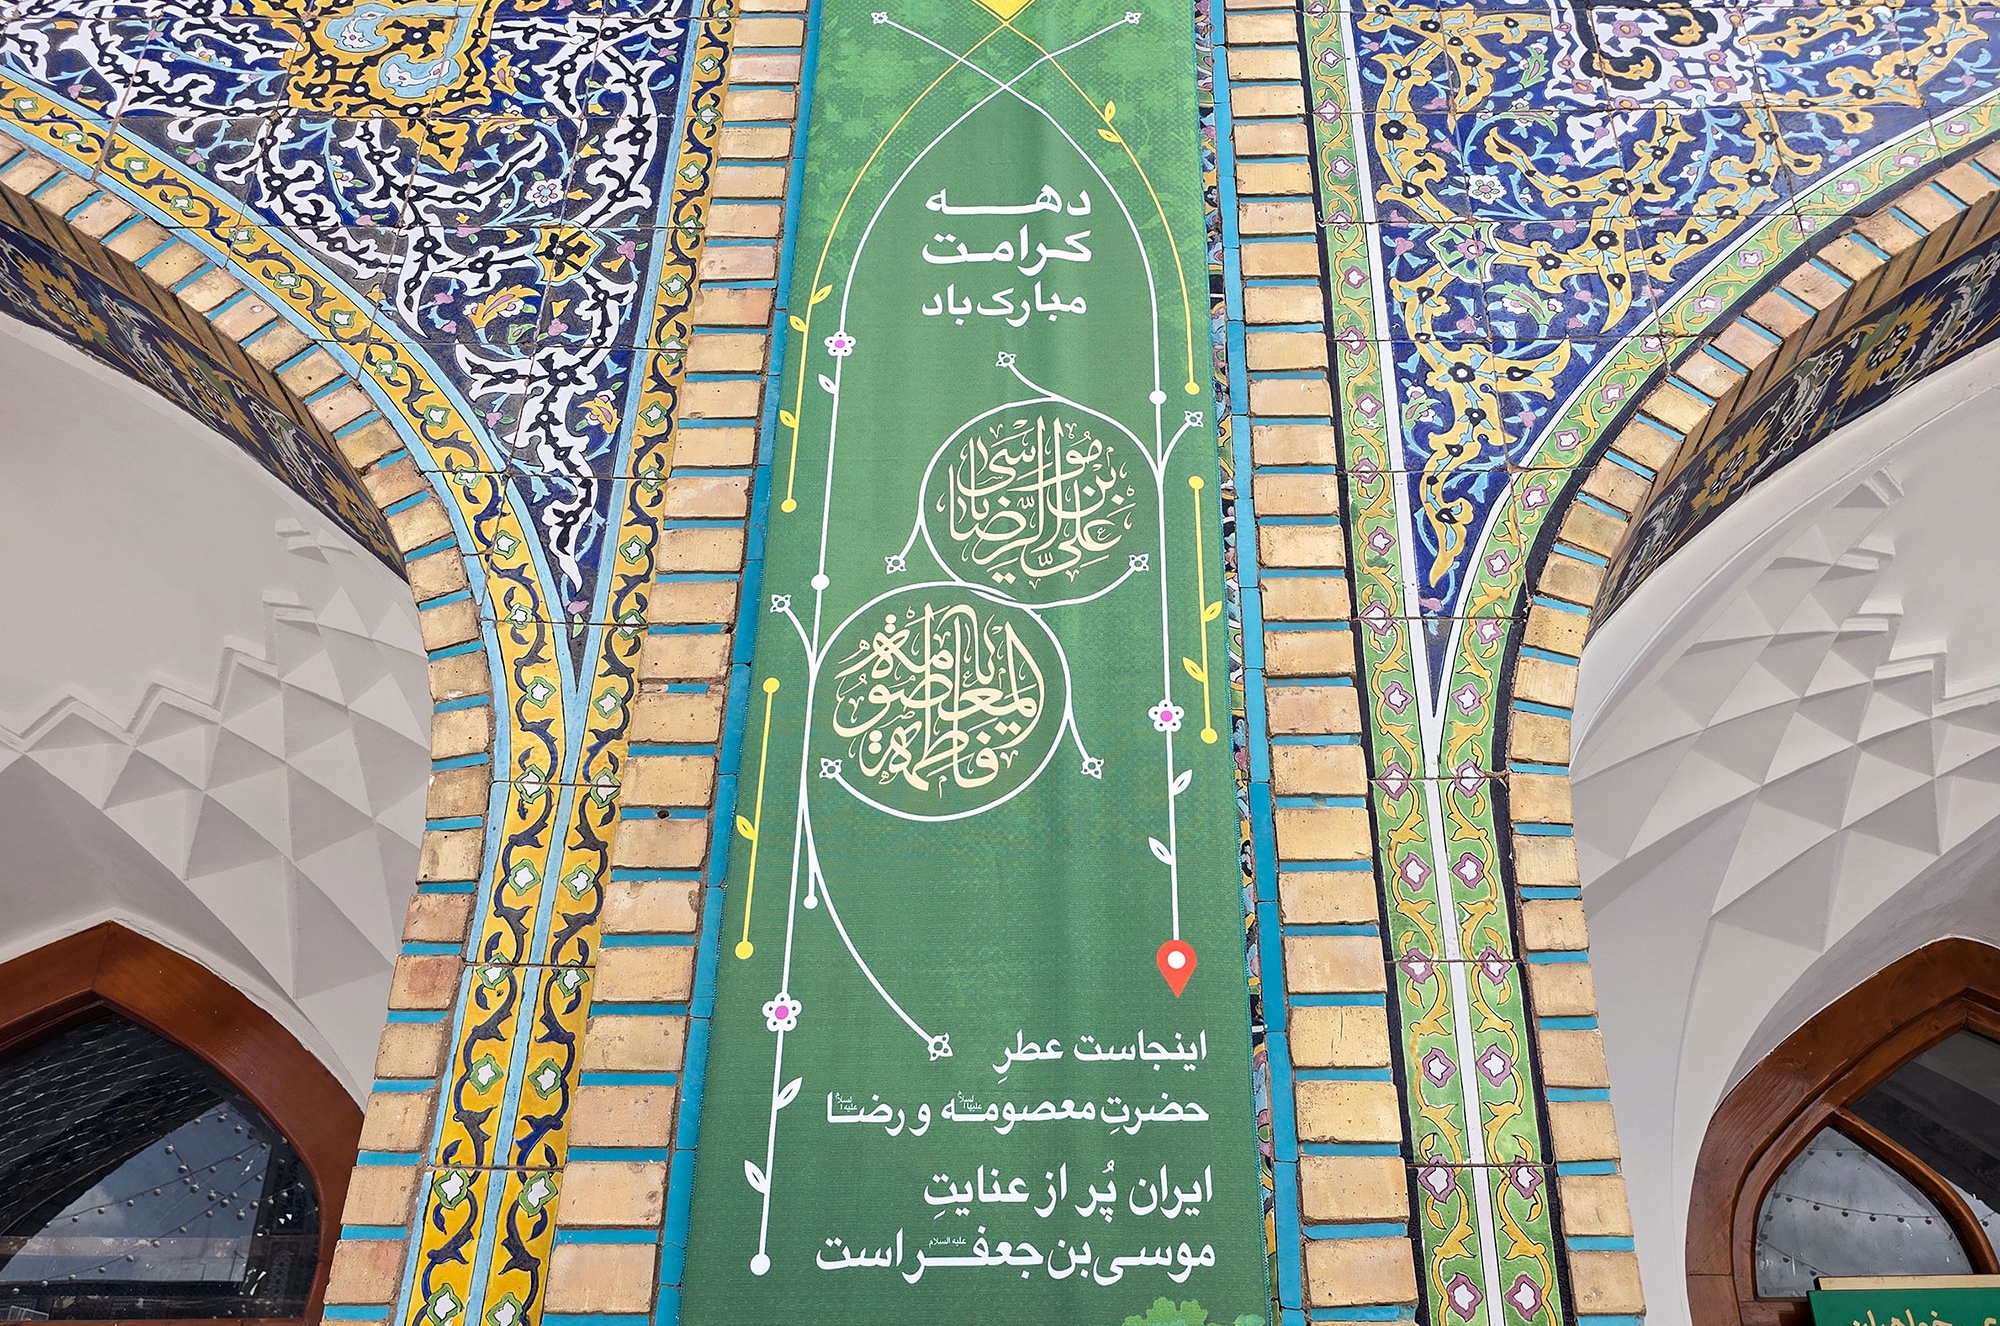 دهه
کرامت
مبارک باد
یا علی بن موسی الرضا
یا فاطمة المعصومة
اینجاست عطرِ
حضرتِ معصومه علیها السلام و رضا علیه السلام
ایران پُر از عنایتِ
موسی بن جعفر علیه السلام است
خواهران